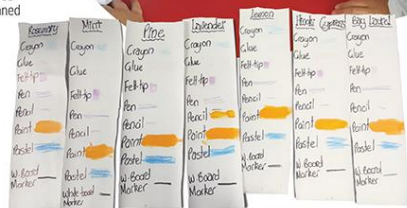 ned
Rosemary
Crayon
Glue
Felt-tip
Pen
Pencil
Paint
Pastel
W.Board
Marker
Mint
Crayon
Glue
Felt-tip
Pen
Pencil
Paint
Pastel
White-board
Marker
Pine
Crayon
Glue
Felt-tip
Pen
Pencil
Paint
Pastel
W.Board
Marker
Lavender
Crayon
Glue
Felt-tip
Pen
Pencil
Paint
Pastel
W.Board
Marker
Lemon
Crayon
Glue
Felt-tip
Pen
Pencil
Paint
Pastel
W.Board
Marker
Crayon
Glue
Felt-tip
Pen
Pencil
Paint
Pastel
W.Board
Marker
Bay Laurel
Crayon
Glue
Felt-tip
Pen
Pencil
Paint
Pastel
W.Board
Marker